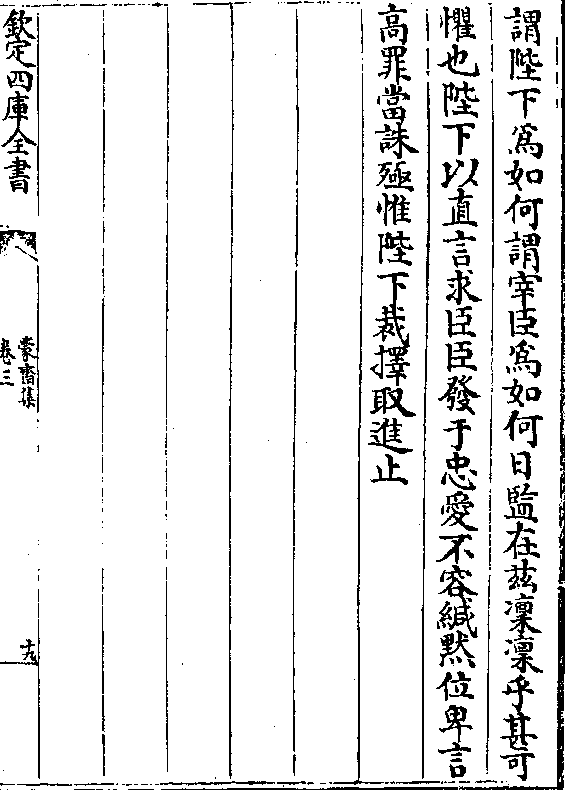 謂陛下為如何謂宰臣為如何日監在茲凜凜乎甚可
懼也陛下以直言求臣臣發于忠愛不容緘默位卑言
高罪當誅殛惟陛下裁擇取進止
欽定四庫全書
蒙齋集
卷三
十九